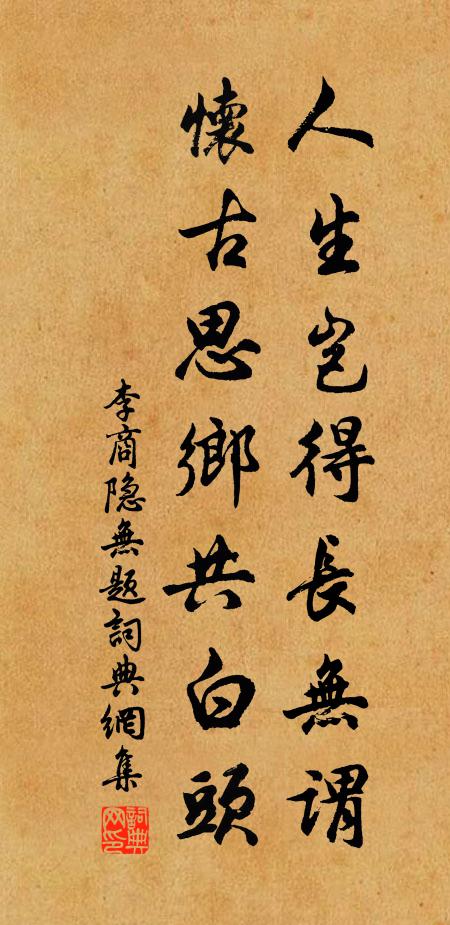 人生岂得長無謂
懷古思鄉共白頭
李商隐無題詞典網集
詞典网印